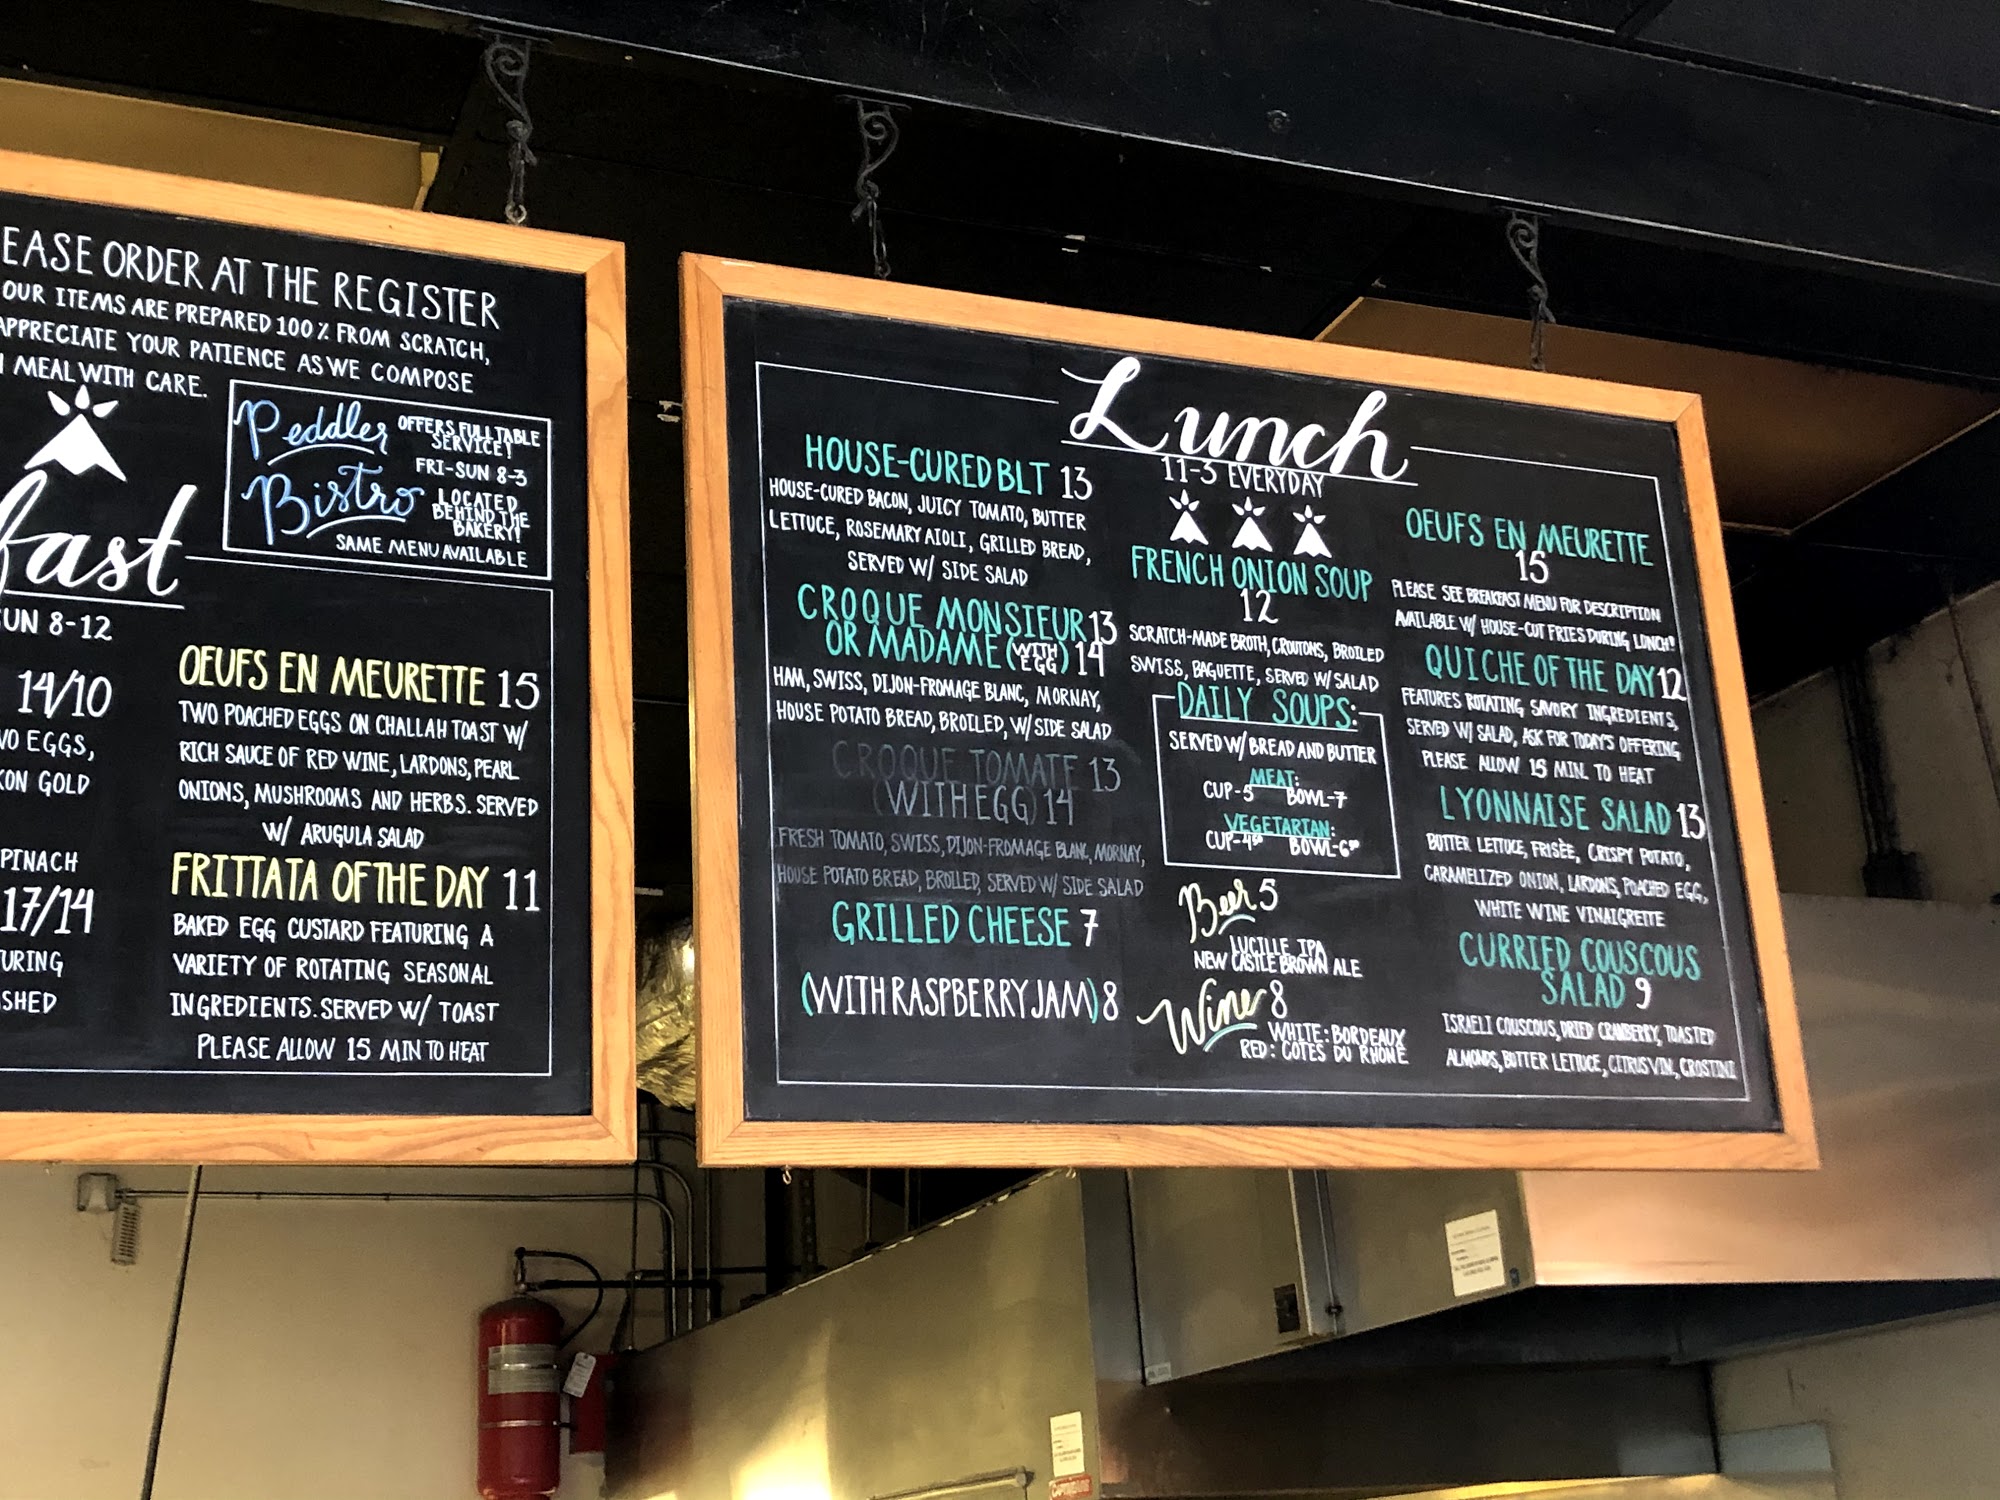 EASE ORDER AT THE REGISTER
OUR ITEMS ARE PREPARED 100% FROM SCRATCH,
APPRECIATE YOUR PATIENCE AS WE COMPOSE
MEAL WITH CARE.
Peddler
Bistro
OFFERS FULL TABLE
SERVICE!
FRI-SUN 8-3
LOCATED
BEHIND THE
BAKERY!
SAME MENU AVAILABLE
fast
SUN 8-12
14/10
WO EGGS,
KON GOLD
SPINACH
17/14
URING
SHED
OEUFS EN MEURETTE 15
TWO POACHED EGGS ON CHALLAH TOAST W/
RICH SAUCE OF RED WINE, LARDONS, PEARL
ONIONS, MUSHROOMS AND HERBS. SERVED
W/ ARUGULA SALAD
FRITTATA OF THE DAY 11
BAKED EGG CUSTARD FEATURING A
VARIETY OF ROTATING SEASONAL
INGREDIENTS. SERVED W/ TOAST
PLEASE ALLOW 15 MIN TO HEAT
Lunch
11-3 EVERYDAY
HOUSE-CURED BLT 13
HOUSE-CURED BACON, JUICY TOMATO, BUTTER
LETTUCE, ROSEMARY AIOLI, GRILLED BREAD,
SERVED W/ SIDE SALAD
CROQUE MONSIEUR 13
OR MADAME (WITH EGG) 14
HAM, SWISS, DIJON-FROMAGE BLANC, MORNAY,
HOUSE POTATO BREAD, BROILED, W/ SIDE SALAD
CROQUE TOMATE 13
(WITH EGG) 14
FRESH TOMATO, SWISS, DIJON-FROMAGE BLANC, MORNAY,
HOUSE POTATO BREAD, BROILED, SERVED W/ SIDE SALAD
GRILLED CHEESE 7
(WITH RASPBERRY JAM) 8
FRENCH ONION SOUP
12
SCRATCH-MADE BROTH, CROUTONS, BROILED
SWISS, BAGUETTE, SERVED W/ SALAD
DAILY SOUPS:
SERVED W/ BREAD AND BUTTER
MEAT:
CUP-5 BOWL-7
VEGETARIAN:
CUP-4⁵⁰ BOWL-6⁵⁰
Beer 5
LUCILLE IPA
NEW CASTLE BROWN ALE
Wine 8
WHITE: BORDEAUX
RED: COTES DU RHONE
OEUFS EN MEURETTE
15
PLEASE SEE BREAKFAST MENU FOR DESCRIPTION
AVAILABLE W/ HOUSE-CUT FRIES DURING LUNCH!
QUICHE OF THE DAY 12
FEATURES ROTATING SAVORY INGREDIENTS,
SERVED W/ SALAD, ASK FOR TODAY'S OFFERING
PLEASE ALLOW 15 MIN. TO HEAT
LYONNAISE SALAD 13
BUTTER LETTUCE, FRISÈE, CRISPY POTATO,
CARAMELIZED ONION, LARDONS, POACHED EGG,
WHITE WINE VINAIGRETTE
CURRIED COUSCOUS
SALAD 9
ISRAELI COUSCOUS, DRIED CRANBERRY, TOASTED
ALMONDS, BUTTER LETTUCE, CITRUS VIN, CROSTINI